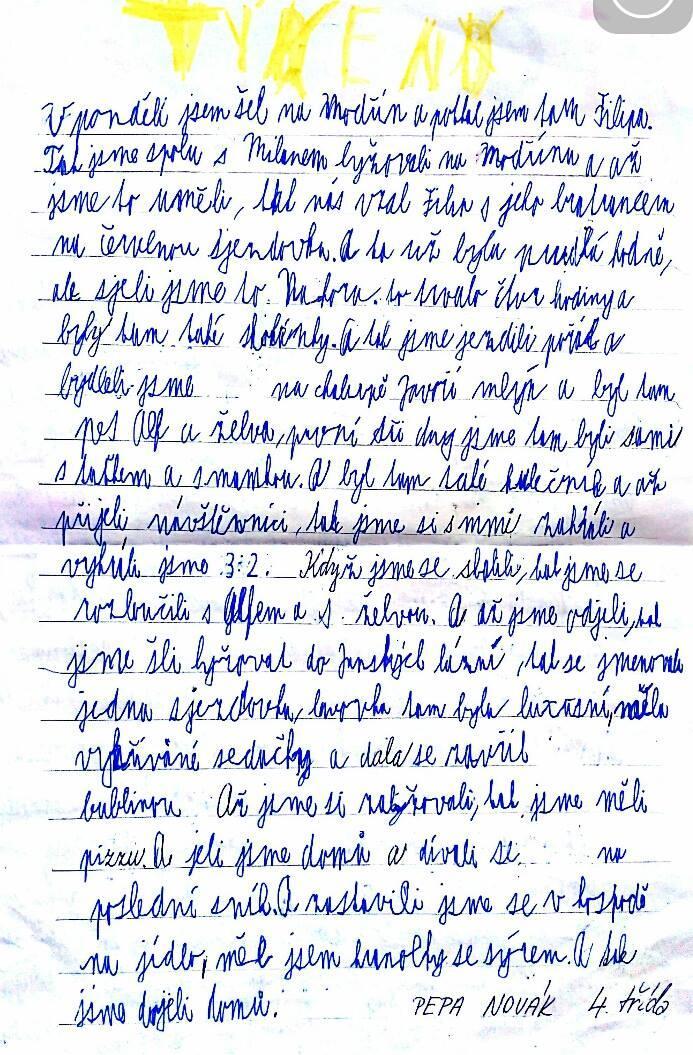 TÝDENO
V pondělí jsem šel na Modřín a potkal jsem tam Filipa.
Tak jsme spolu s Milanem lyžovali na Modřínu a až
jsme to uměli, tak nás vzal Filip s jeho bratrancem
na červenou sjezdovku. A ta už byla prudká hodně,
ale sjeli jsme to. Nahoru to trvalo čtvr hodiny a
byly tam také skokánky. A tak jsme jezdili pořád a
bydleli jsme na chalupě Javoří mlýn a byl tam
pes Alf a želva, první tři dny jsme tam byli sami
s taťkem a s mamkou. A byl tam také kulečník a až
přijeli návštěvníci, tak jsme si s nimi zahráli a
vyhráli jsme 3:2. Když jsme se sbalili, tak jsme se
rozloučili s Alfem a s želvou. A až jsme odjeli, tak
jsme šli lyžovat do Janských lázní, tak se jmenovala
jedna sjezdovka, lanovka tam byla luxusní, měla
vyhřívané sedačky a dala se zavřít
bublinou Až jsme si zalyžovali, tak jsme měli
pizzu. A jeli jsme domů a dívali se na
poslední sníh. A zastavili jsme se v hospodě
na jídlo, měl jsem hranolky se sýrem. A tak
jsme dojeli domů. PEPA NOVÁK 4. třída